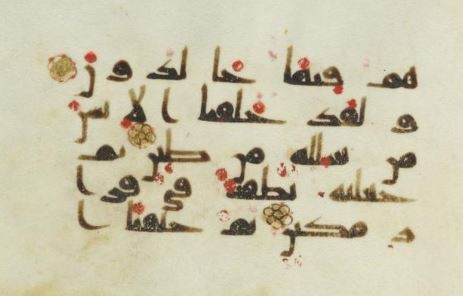 هم فيها خالدون
ولقد خلقنا الانسن
من سللة من طين ثم
جعلنه نطفة في قرا
ر مكين ثم خلقنا ا